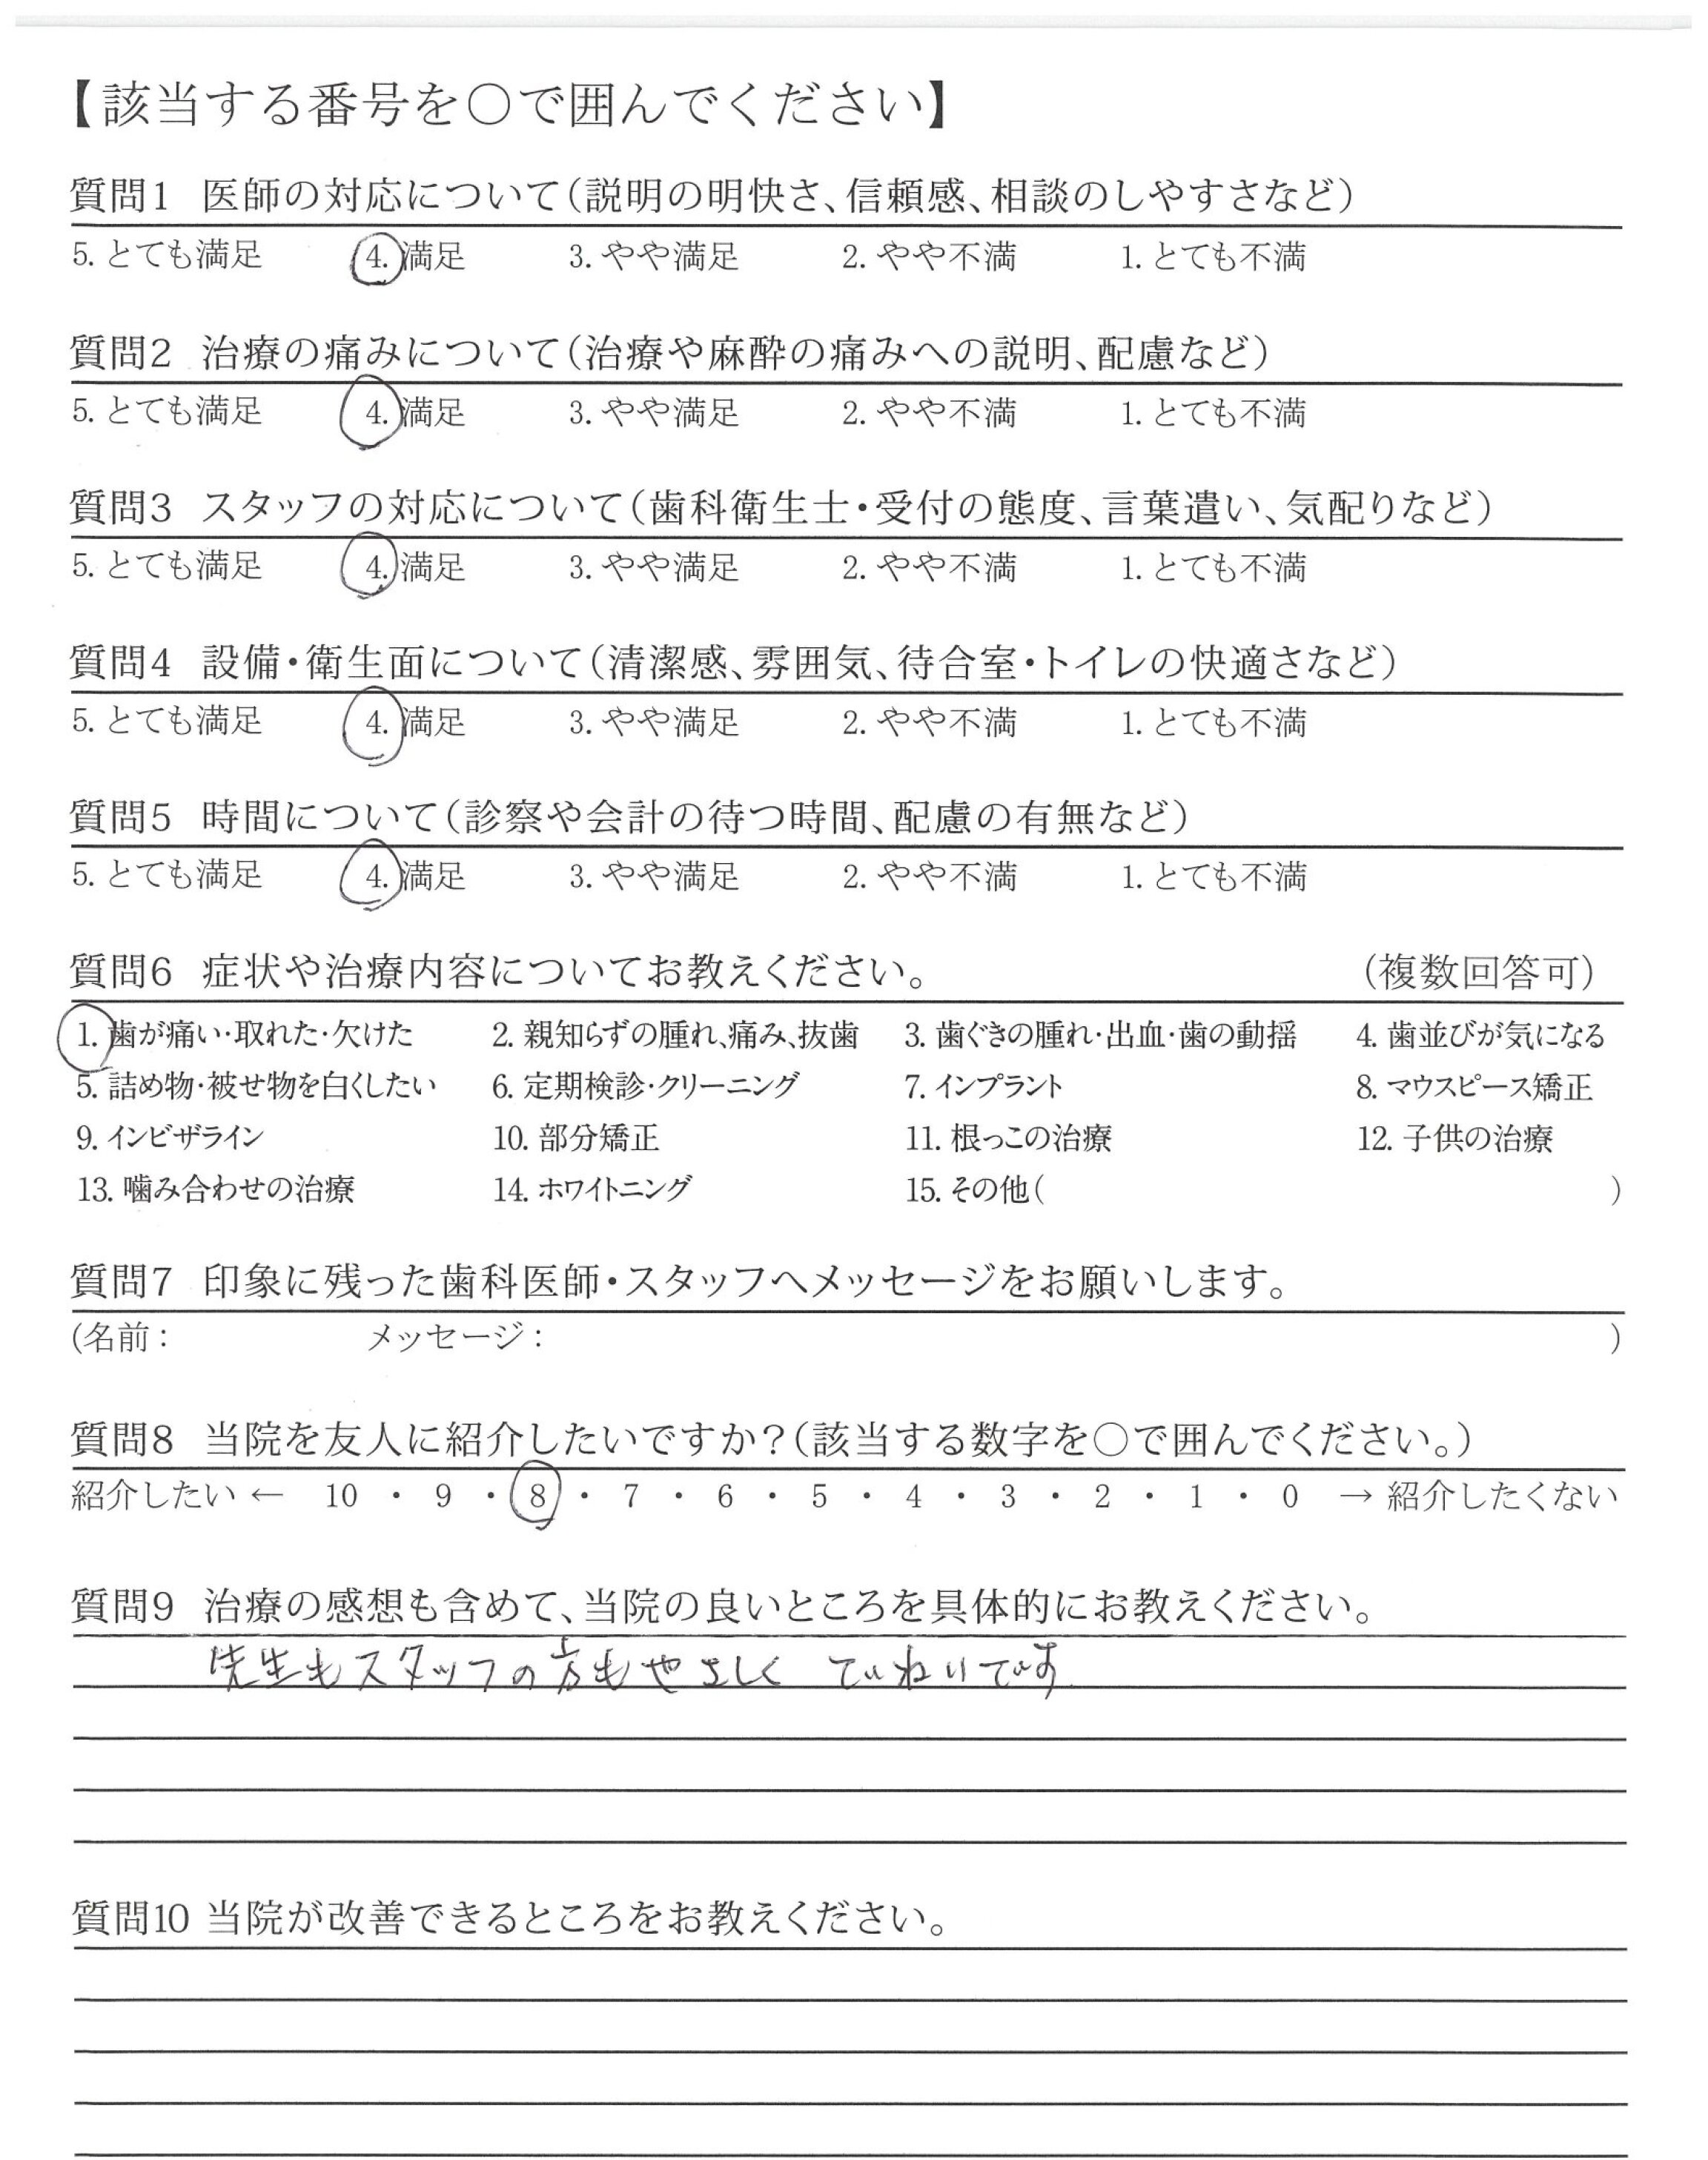 【該当する番号を○で囲んでください】
質問1 医師の対応について(説明の明快さ、信頼感、相談のしやすさなど)
5. とても満足 4. 満足 3. やや満足 2. やや不満 1. とても不満
質問2 治療の痛みについて(治療や麻酔の痛みへの説明、配慮など)
5. とても満足 4. 満足 3. やや満足 2. やや不満 1. とても不満
質問3 スタッフの対応について(歯科衛生士・受付の態度、言葉遣い、気配りなど)
5. とても満足 4. 満足 3. やや満足 2. やや不満 1. とても不満
質問4 設備・衛生面について(清潔感、雰囲気、待合室・トイレの快適さなど)
5. とても満足 4. 満足 3. やや満足 2. やや不満 1. とても不満
質問5 時間について(診察や会計の待つ時間、配慮の有無など)
5. とても満足 4. 満足 3. やや満足 2. やや不満 1. とても不満
質問6 症状や治療内容についてお教えください。 (複数回答可)
1. 歯が痛い・取れた・欠けた 2. 親知らずの腫れ、痛み、抜歯 3. 歯ぐきの腫れ・出血・歯の動揺 4. 歯並びが気になる
5. 詰め物・被せ物を白くしたい 6. 定期検診・クリーニング 7. インプラント 8. マウスピース矯正
9. インビザライン 10. 部分矯正 11. 根っこの治療 12. 子供の治療
13. 噛み合わせの治療 14. ホワイトニング 15. その他( )
質問7 印象に残った歯科医師・スタッフへメッセージをお願いします。
(名前: メッセージ: )
質問8 当院を友人に紹介したいですか?(該当する数字を○で囲んでください。)
紹介したい ← 10 ・ 9 ・ 8 ・ 7 ・ 6 ・ 5 ・ 4 ・ 3 ・ 2 ・ 1 ・ 0 → 紹介したくない
質問9 治療の感想も含めて、当院の良いところを具体的にお教えください。
先生もスタッフの方もやさしく ていねいです
質問10 当院が改善できるところをお教えください。